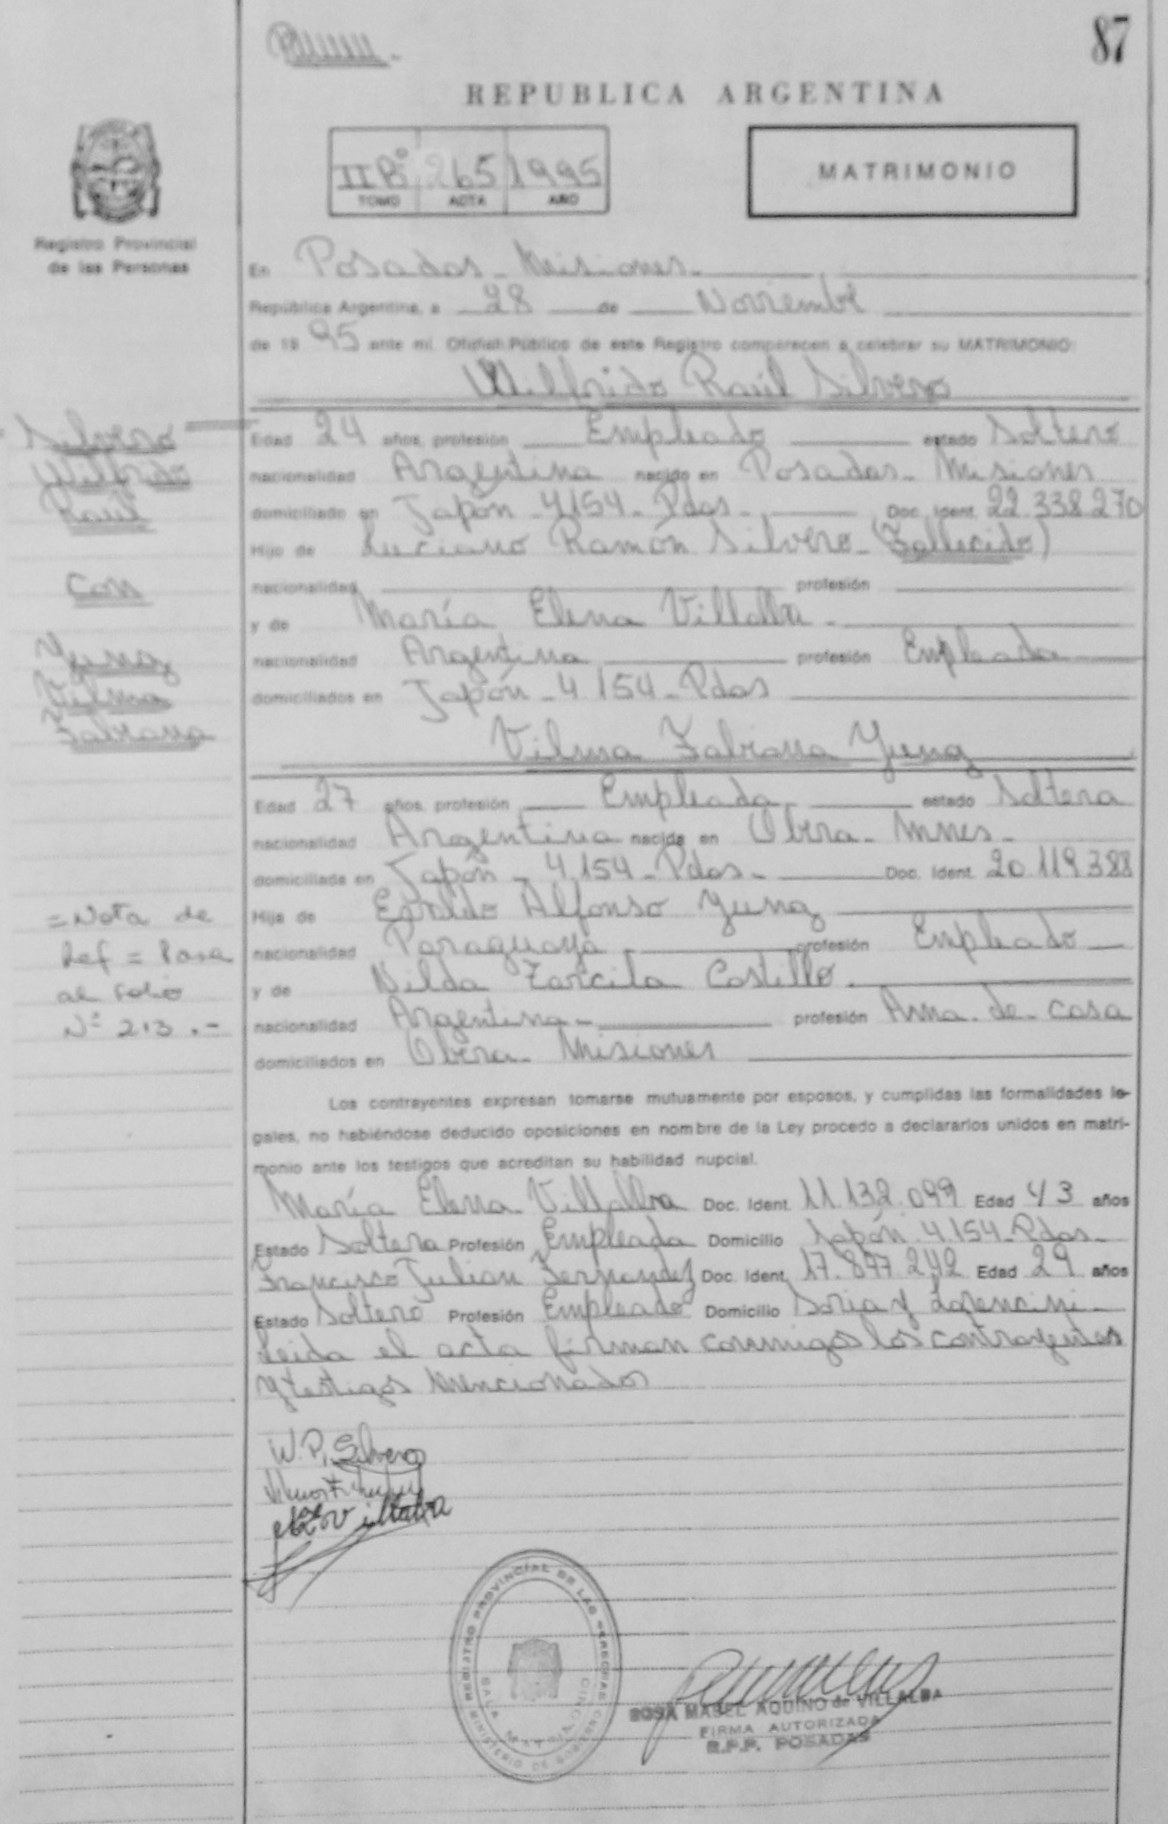 87
REPUBLICA ARGENTINA
IIBº 265 1995
TOMO ACTA AÑO
MATRIMONIO
Registro Provincial
de las Personas
En Posadas - Misiones -
República Argentina, a 28 de Noviembre
de 19 95 ante mí, Oficial Público de este Registro comparecen a celebrar su MATRIMONIO:
Wilfrido Raúl Silvero
Silvero
Wilfrido
Raúl
con
Yung
Vilma
Fabiana
Edad 24 años, profesión Empleado estado Soltero
nacionalidad Argentina nacido en Posadas - Misiones
domiciliado en Japón - 4154 - Pdas - Doc. Ident. 22.338.270
Hijo de Luciano Ramón Silvero - (Fallecido)
nacionalidad profesión
y de María Elena Villalba -
nacionalidad Argentina profesión Empleada
domiciliados en Japón - 4154 - Pdas
Vilma Fabiana Yung
Edad 27 años, profesión Empleada estado Soltera
nacionalidad Argentina nacida en Obera - Mnes -
domiciliada en Japón - 4.154 - Pdas - Doc. Ident. 20.119.388
Hija de Alfonso Yung
nacionalidad Paraguaya profesión Empleado
y de Nilda Tarcila Castillo -
nacionalidad Argentina - profesión Ama - de - casa
domiciliados en Obera - Misiones
= Nota de
Ref = Pasa
al folio
Nº 213 . -
Los contrayentes expresan tomarse mutuamente por esposos, y cumplidas las formalidades le-
gales, no habiéndose deducido oposiciones en nombre de la Ley procedo a declararlos unidos en matri-
monio ante los testigos que acreditan su habilidad nupcial.
María Elena Villalba Doc. Ident. 11.132.099 Edad 43 años
Estado Soltera Profesión Empleada Domicilio Japón 4154 - Pdas -
Francisco Julian Fernandez Doc. Ident. 17.897.242 Edad 29 años
Estado Soltero Profesión Empleado Domicilio Soria y Lorencini -
Leida el acta firman conmigo los contrayentes
y testigos mencionados
W. R. Silvero
Villalba
REGISTRO PROVINCIAL DE LAS PERSONAS
MINISTERIO DE GOBIERNO
ROSA MABEL AQUINO de VILLALBA
FIRMA AUTORIZADA
R.P.P. POSADAS